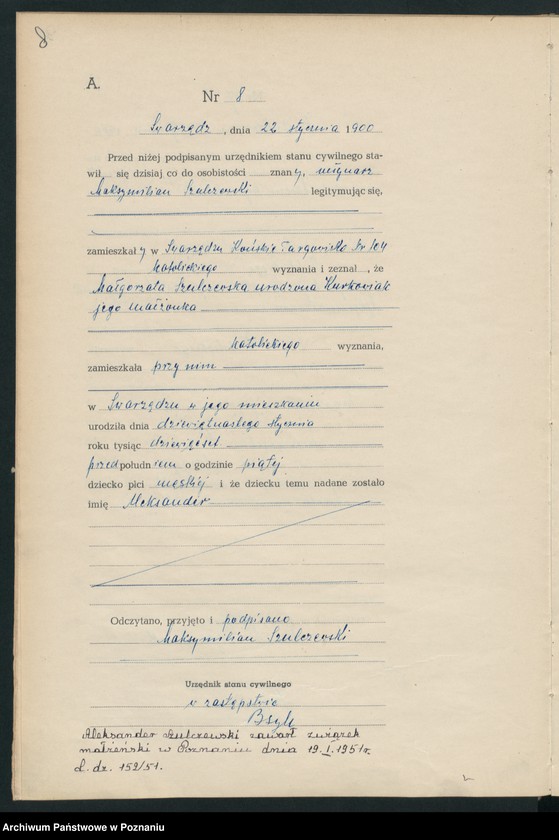 8
A.
Nr 8
Swarzędz, dnia 22 stycznia 1900
Przed niżej podpisanym urzędnikiem stanu cywilnego sta-
wił, się dzisiaj co do osobistości znany,
Maksymilian Szulczewski legitymując się,
zamieszkały w Swarzędzu Końskie Targowisko Nr 104
katolickiego wyznania i zeznał, że
Małgorzata Szulczewska urodzona Kurkowiak
jego małżonka
katolickiego wyznania,
zamieszkała przy nim
w Swarzędzu w jego mieszkaniu
urodziła dnia dziewiętnastego stycznia
roku tysiąc dziewięćset
przedpołudniem o godzinie piątej
dziecko płci męskiej i że dziecku temu nadane zostało
imię Aleksander
Odczytano, przyjęto i podpisano
Maksymilian Szulczewski
Urzędnik stanu cywilnego
w zastępstwie
Aleksander Szulczewski zawarł związek
małżeński w Poznaniu dnia 19.I.1951r.
L. dz. 152/51.
Archiwum Państwowe w Poznaniu